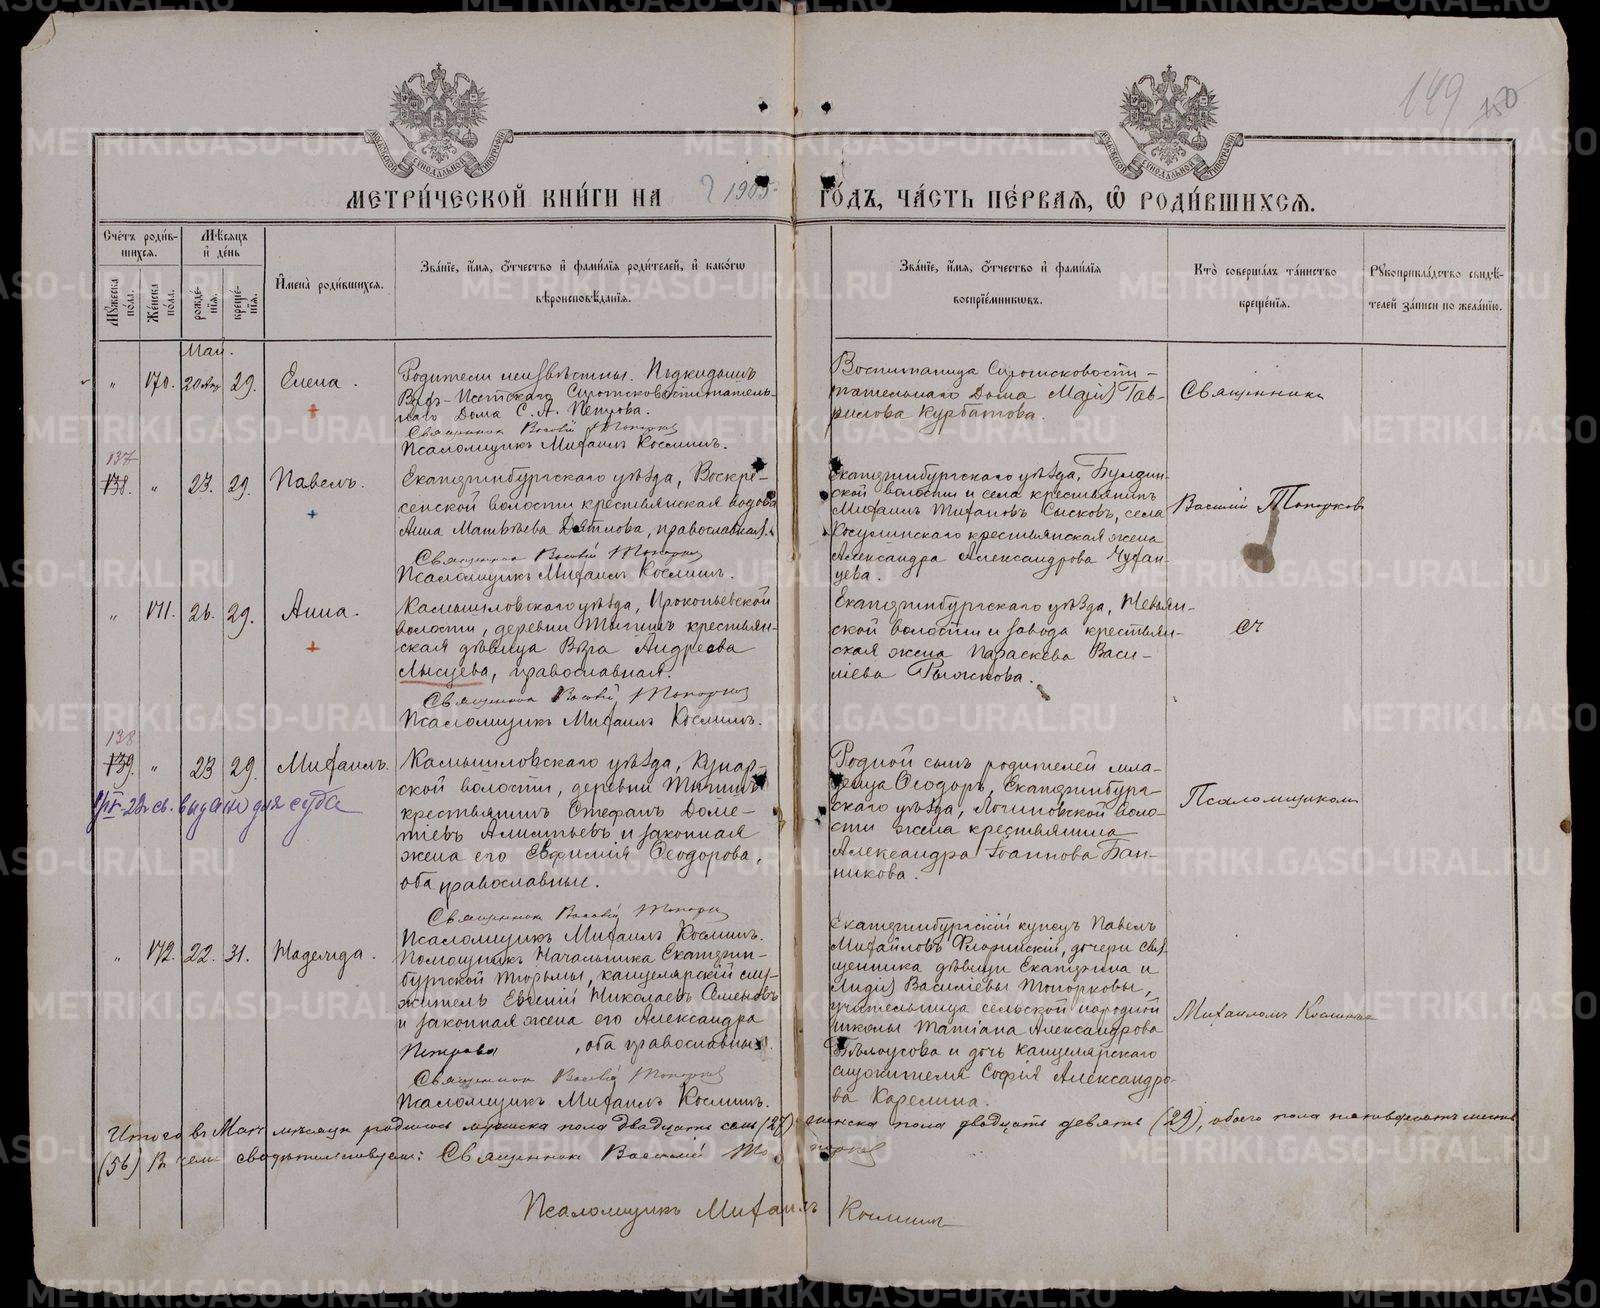 149 150
МЕТРИ́ЧЕСКОЙ КНИ́ГИ НА 1905 ГО́ДЪ, ЧА́СТЬ ПЕ́РВАѦ, Ѡ҆ РОДИ́ВШИХСѦ.
Счётъ роди́вшихсѧ.
Мѣ́сѧцъ и҆ де́нь
Мꙋ́жеска по́ла.
Же́нска по́ла.
рожде́нїѧ.
креще́нїѧ.
И҆мена̀ роди́вшихсѧ.
Зва́нїе, и҆́мѧ, ѻ҆́тчество и҆ фами́лїѧ роди́телей, и҆ како́гѡ
вѣроисповѣ́данїѧ.
Зва́нїе, и҆́мѧ, ѻ҆́тчество и҆ фами́лїѧ
воспрїе́мникѡвъ.
Кто̀ соверша́лъ та́инство
креще́нїѧ.
Рꙋкоприкла́дство свидѣ́-
телей за́писи по жела́нїю.
Май.
" 170. 20 Апр 29. Елена.
Родители неизвѣстны. Подкидышъ
Верх-Исетскаго Сиротсковоспитатель-
наго Дома С. А. Петрова.
Священник Василій Топорков
Псаломщикъ Михаилъ Космин.
Воспитаница Сиротсковоспи-
тательнаго Дома Марія Гав-
рилова Курбатова.
Священник
137
138. " 23. 29. Павелъ.
Екатеринбургскаго уѣзда, Воскре-
сенской волости крестьянская вдова
Анна Матвѣева Дятлова, православная.
Священник Василій Топорков
Псаломщикъ Михаилъ Космин.
Екатеринбургскаго уѣзда, Булзин-
ской волости и села крестьянинъ
Михаилъ Тихановъ Сысковъ, села
крестьянская жена
Александра Александрова Чухан-
цева.
Василій Топорков
" 171. 26. 29. Анна.
Камышловскаго уѣзда, Прокопьевской
волости, деревни крестьян-
ская дѣвица Вѣра Андреева
Лысцева, православная.
Священник Василій Топорков
Псаломщикъ Михаилъ Космин.
Екатеринбургскаго уѣзда, Невьян-
ской волости и завода крестьян-
ская жена Параскева Васи-
ліева Рычкова.
съ
138
139. " 23 29. Михаилъ.
выдано для суда
Камышловскаго уѣзда, Кунар-
ской волости, деревни
крестьянинъ Стефанъ Доме-
тіевъ и законная
жена его Евфимія Ѳеодорова,
оба православные.
Священник Василій Топорков
Псаломщикъ Михаилъ Космин.
Родной сынъ родителей мла-
денца Ѳеодоръ, Екатеринбург-
скаго уѣзда, Логиновской воло-
сти жена крестьянина
Александра Іоаннова Бан-
никова.
Псаломщиком
" 172. 22. 31. Надежда.
Помощникъ Начальника Екатерин-
бургской тюрьмы, канцелярскій слу-
житель Евгеній Николаевъ Семеновъ
и законная жена его Александра
Петрова, оба православные.
Священник Василій Топорков
Псаломщикъ Михаилъ Космин.
Екатеринбургскій купецъ Павелъ
Михайловъ Флоринскій, дочери свя-
щенника дѣвицы Екатерина и
Лидія Василіевы Топорковы,
учительница сельской народной
школы Татіана Александрова
Бѣлоусова и дочь канцелярскаго
служителя Софія Александро-
ва Карелина.
Михаилом Косминым
Итого въ Маѣ мѣсяцѣ родилось мужска пола двадцать семь (27) женска пола двадцать девять (29), обоего пола пятьдесятъ шесть
(56) В чем свидѣтельствуем: Священник Василій Топорков
Псаломщикъ Михаилъ Космин
METRIKI.GASO-URAL.RU